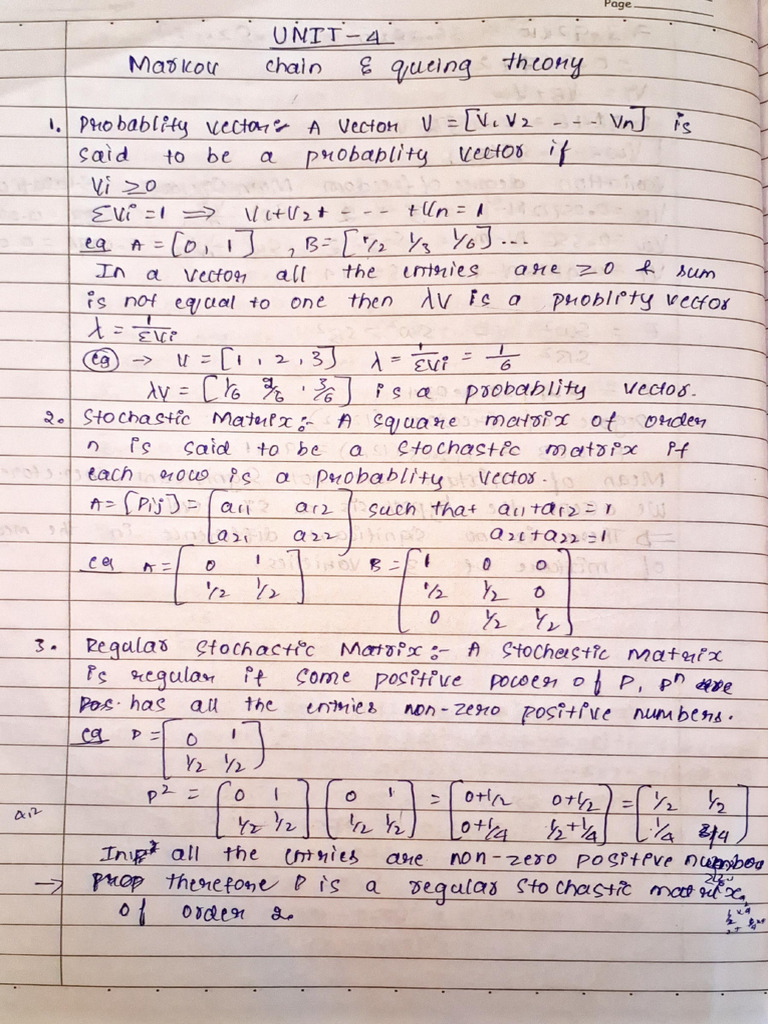 Page
UNIT-4
Markov chain & queing theory
1. Probablity vector:- A vector V = [V1 V2 ---- Vn] is
said to be a probablity vector if
Vi ≥ 0
ΣVi = 1 ⟹ V1+V2+ ---- +Vn = 1
eg A = [0, 1] , B = [1/2 1/3 1/6] ...
In a vector all the entries are ≥0 & sum
is not equal to one then λV is a problity vector
λ = 1/ΣVi
eg → V = [1, 2, 3] λ = 1/ΣVi = 1/6
λV = [1/6 2/6 , 3/6] is a probablity vector.
2. Stochastic Matrix:- A square matrix of order
n is said to be a stochastic matrix if
each row is a probablity vector.
A = [Pij] = [a11 a12 such that a11+a12 = 1
a21 a22] a21+a22=1
eg A = [0 1 B = [1 0 0
1/2 1/2] 1/2 1/2 0
0 1/2 1/2]
3. Regular Stochastic Matrix:- A Stochastic Matrix
is regular if some positive power of P, Pⁿ are
pos. has all the entries non-zero positive numbers.
eg P = [0 1
1/2 1/2]
P² = [0 1 [0 1 = [0+1/2 0+1/2 = [1/2 1/2
1/2 1/2] 1/2 1/2] 0+1/4 1/2+1/4] 1/4 3/4]
In P² all the entries are non-zero positive number
→ prop therefore P is a regular stochastic matrix
of order 2.